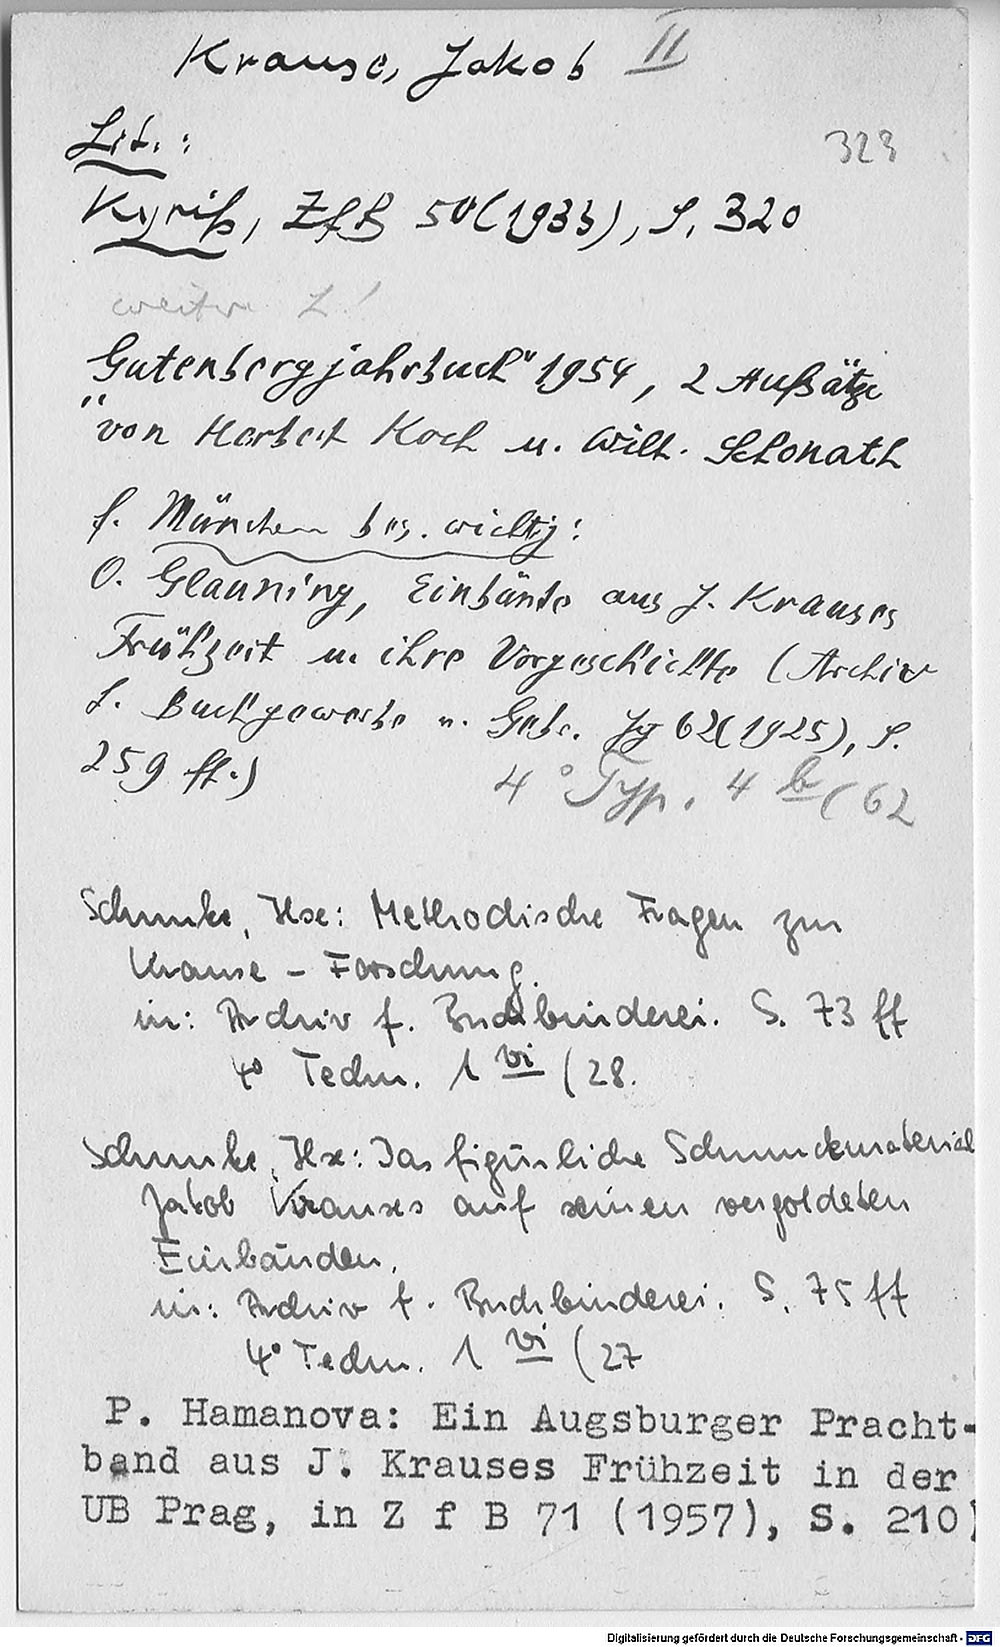 Krause, Jakob II
Lit.: 323
Kyriß, ZfB 50 (1933), S. 320
weitere L!
"Gutenbergjahrbuch" 1954, 2 Aufsätze
von Herbert Koch u. Wilh. Schonath
f. München bes. wichtig:
O. Glauning, Einbände aus J. Krauses
Frühzeit u. ihre Vorgeschichte (Archiv
f. Buchgewerbe u. Gebr. Jg 62 (1925), S.
259 ff.)
4° Typ. 4 b (62
Schunke, Ilse: Methodische Fragen zur
Krause - Forschung.
in: Archiv f. Buchbinderei. S. 73 ff
4° Techn. 1 vi (28.
Schunke, Ilse: Das figürliche Schmuckmaterial
Jakob Krauses auf seinen vergoldeten
Einbänden.
in: Archiv f. Buchbinderei. S. 75 ff
4° Techn. 1 vi (27
P. Hamanova: Ein Augsburger Pracht-
band aus J. Krauses Frühzeit in der
UB Prag, in Z f B 71 (1957), S. 210)
Digitalisierung gefördert durch die Deutsche Forschungsgemeinschaft - DFG